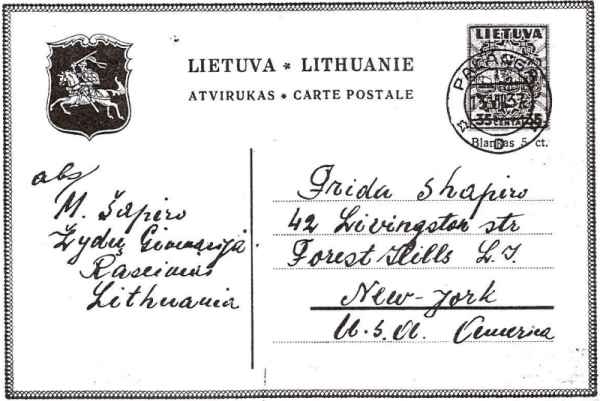 LIETUVA * LITHUANIE
ATVIRUKAS • CARTE POSTALE
LIETUVA
35 CENTAI 35
Blankas 5 ct.
abs
M. Šapiro
Žydų Gimnazija
Raseiniai
Lithuania
Frida Shapiro
42 Livingston str
Forest Hills L.I.
New-York
U.S.A. America